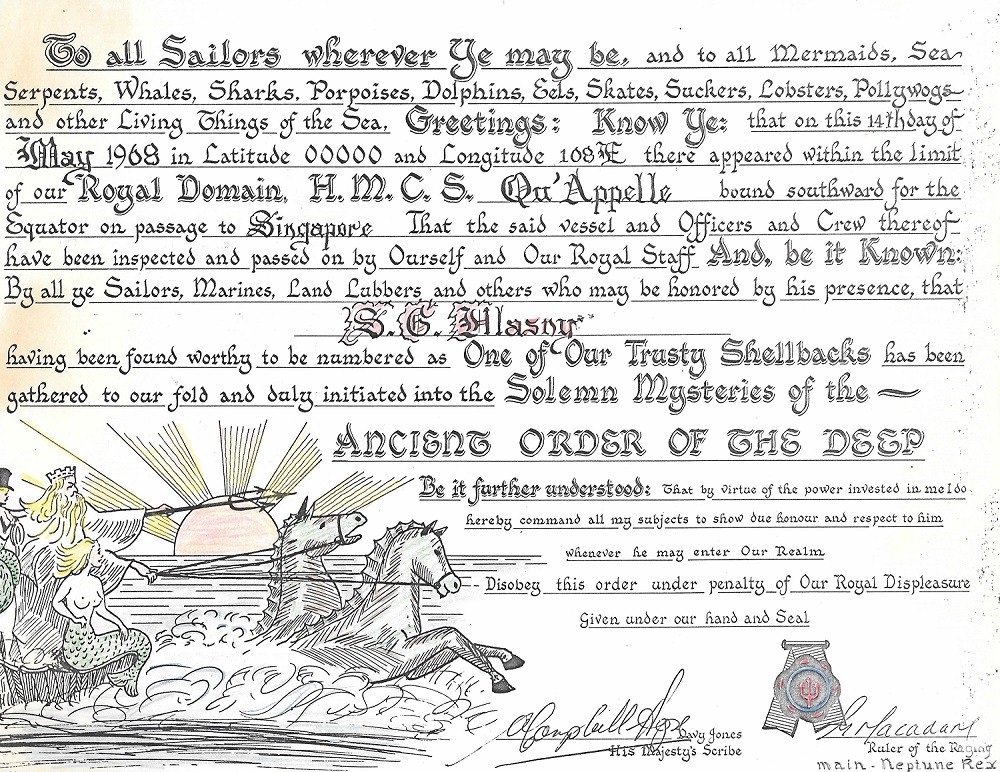 To all Sailors wherever Ye may be, and to all Mermaids, Sea
Serpents, Whales, Sharks, Porpoises, Dolphins, Eels, Skates, Suckers, Lobsters, Pollywogs
and other Living Things of the Sea, Greetings: Know Ye: that on this 14th day of
May 1968 in Latitude 00000 and Longitude 108°E there appeared within the limit
of our Royal Domain, H. M. C. S. Qu'Appelle bound southward for the
Equator on passage to Singapore That the said vessel and Officers and Crew thereof
have been inspected and passed on by Ourself and Our Royal Staff And, be it Known:
By all ye Sailors, Marines, Land Lubbers and others who may be honored by his presence, that
S. E. Hlasny
having been found worthy to be numbered as One of Our Trusty Shellbacks has been
gathered to our fold and duly initiated into the Solemn Mysteries of the —
ANCIENT ORDER OF THE DEEP
Be it further understood: That by virtue of the power invested in me I do
hereby command all my subjects to show due honour and respect to him
whenever he may enter Our Realm
Disobey this order under penalty of Our Royal Displeasure
Given under our hand and Seal
Davy Jones
His Majesty's Scribe
Ruler of the Raging
main - Neptune Rex